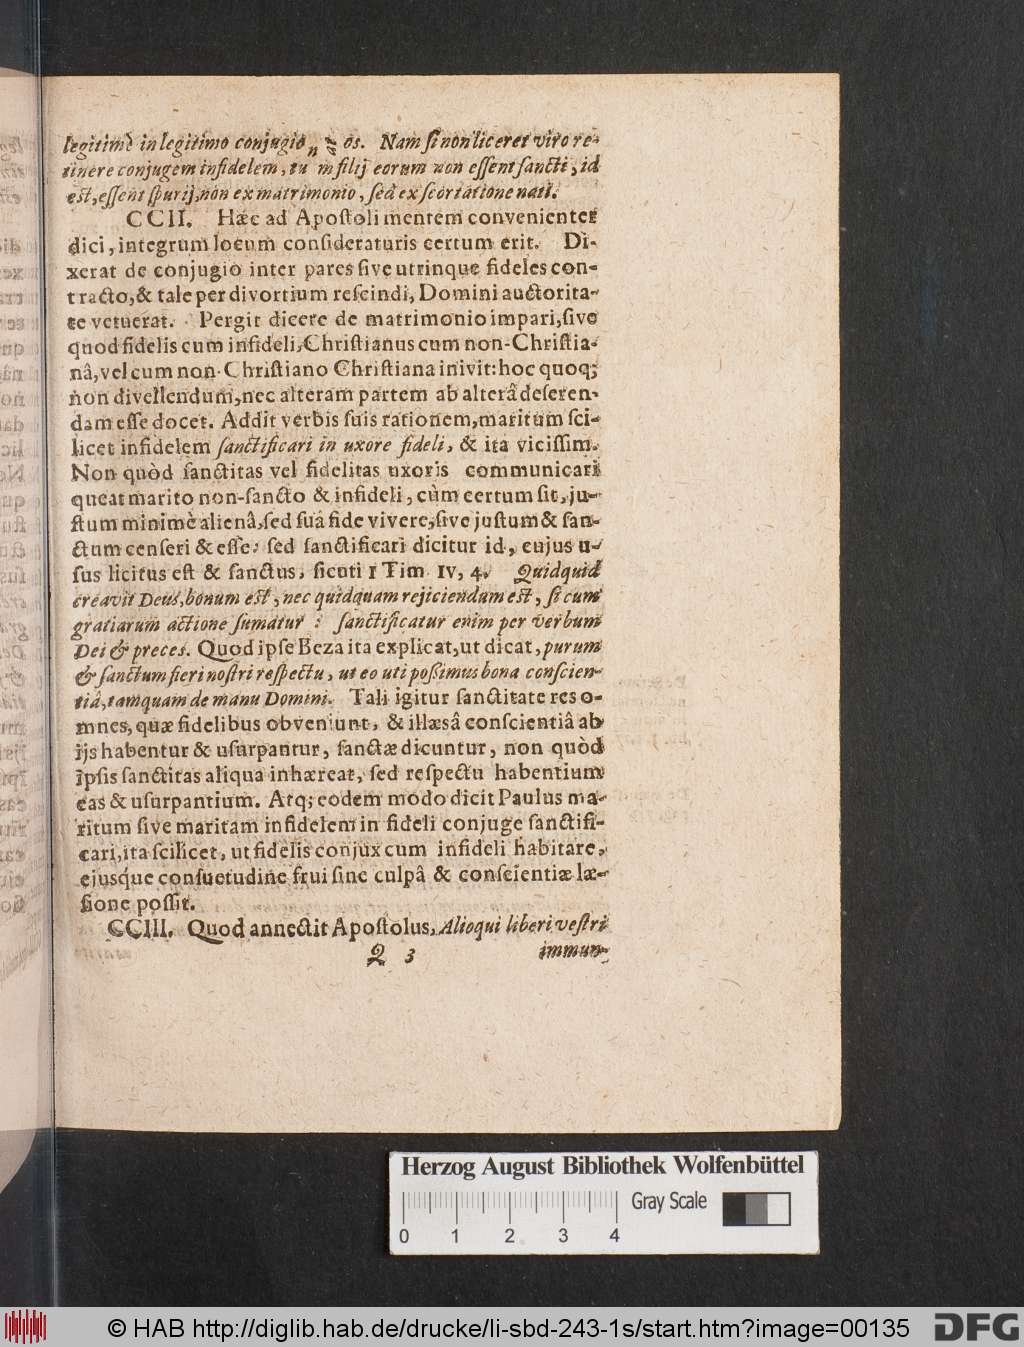 legitimè in legitimo conjugio n os. Nam si non liceret viro re-
tinere conjugem infidelem, tu m filij eorum non essent sancti, id
est, essent spurij, non ex matrimonio, sed ex scortatione nati.
CCII. Hæc ad Apostoli mentem convenienter
dici, integrum locum consideraturis certum erit. Di-
xerat de conjugio inter pares sive utrinque fideles con-
tracto, & tale per divortium rescindi, Domini auctorita-
te vetuerat. Pergit dicere de matrimonio impari, sive
quod fidelis cum infideli, Christianus cum non-Christia-
nâ, vel cum non-Christiano Christiana inivit: hoc quoq;
non divellendum, nec alteram partem ab alterâ deseren-
dam esse docet. Addit verbis suis rationem, maritum sci-
licet infidelem sanctificari in uxore fideli, & ita vicissim.
Non quòd sanctitas vel fidelitas uxoris communicari
queat marito non-sancto & infideli, cùm certum sit, ju-
stum minimè alienâ, sed suâ fide vivere, sive justum & san-
ctum censeri & esse: sed sanctificari dicitur id, cujus u-
sus licitus est & sanctus, sicuti 1 Tim. IV, 4. Quidquid
creavit Deus, bonum est, nec quidquam rejiciendum est, si cum
gratiarum actione sumatur : sanctificatur enim per verbum
Dei & preces. Quod ipse Beza ita explicat, ut dicat, purum
& sanctum fieri nostri respectu, ut eo uti possimus bona conscien-
tiâ, tamquam de manu Domini. Tali igitur sanctitate res o-
mnes, quæ fidelibus obveniunt, & illæsâ conscientiâ ab
ijs habentur & usurpantur, sanctæ dicuntur, non quòd
ipsis sanctitas aliqua inhæreat, sed respectu habentium
eas & usurpantium. Atq; eodem modo dicit Paulus ma-
ritum sive maritam infidelem in fideli conjuge sanctifi-
cari, ita scilicet, ut fidelis conjux cum infideli habitare,
ejusque consuetudine frui sine culpâ & conscientiæ læ-
sione possit.
CCIII. Quod annectit Apostolus, Alioqui liberi vestri
Q 3 immun-
Herzog August Bibliothek Wolfenbüttel
Gray Scale
0 1 2 3 4
© HAB http://diglib.hab.de/drucke/li-sbd-243-1s/start.htm?image=00135
DFG